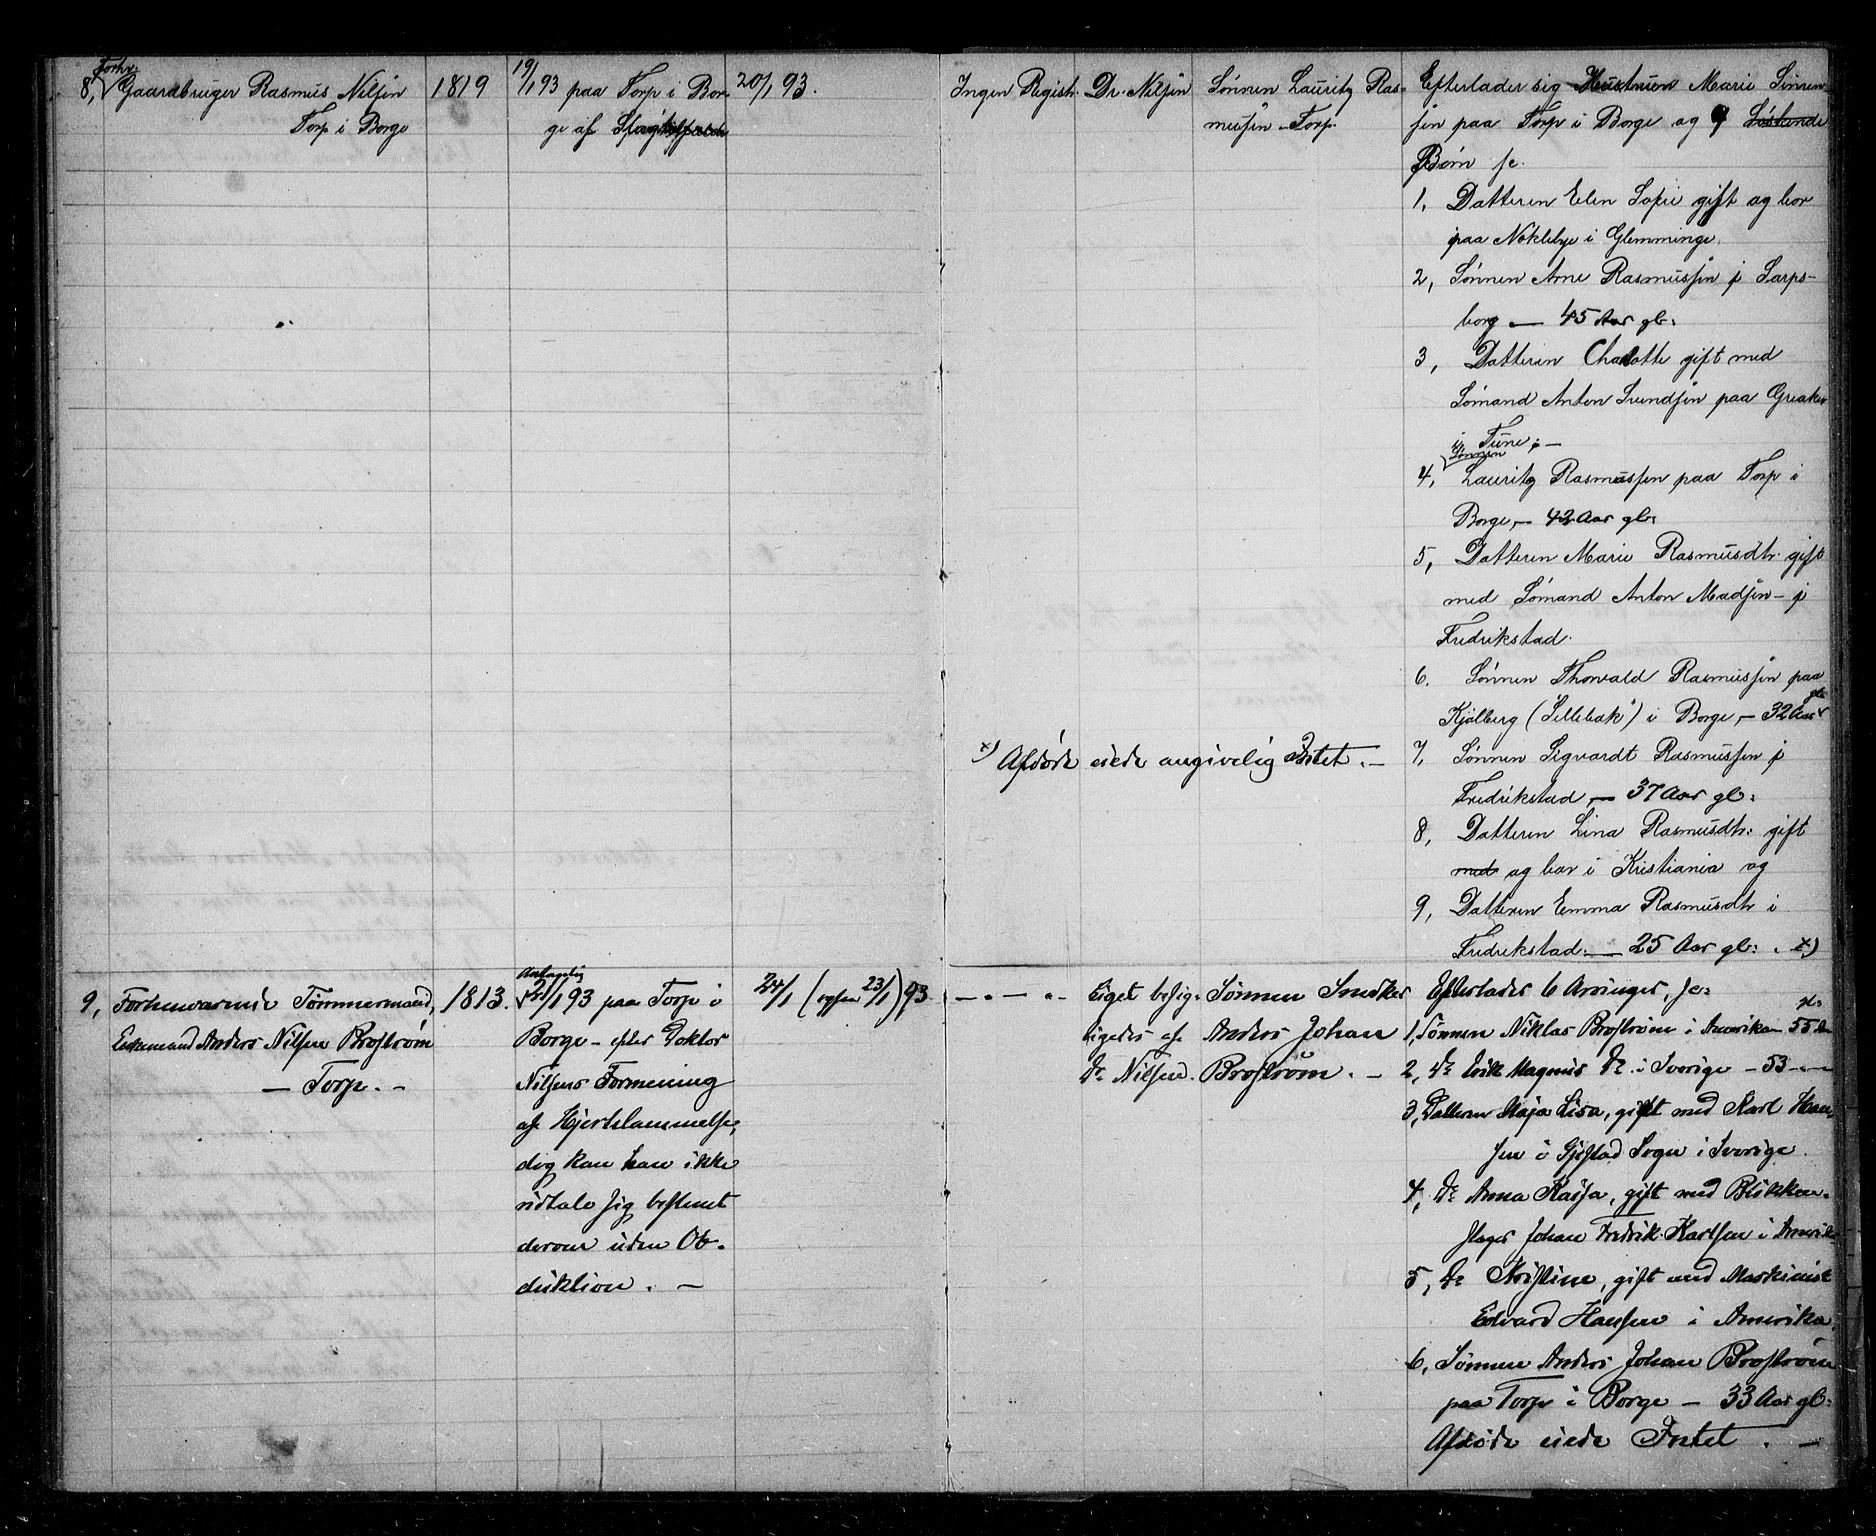 Forhv.
8, Gaardbruger Rasmus Nilsen
Torp i Borge
1819
19/1 93 paa Torp i Bor-
ge af
20/1 93.
Ingen Registr.
Dr. Nilsen
Sønnen Lauritz Ras-
mussen - Torp.
Efterlader sig Hustruen Marie Simen-
sen paa Torp i Borge og 9
Børn sc.
1, Datteren Elen Sofie gift og bor
paa Nøkleby i Glemminge.
2, Sønnen Arne Rasmussen i Sarps-
borg — 45 Aar gl:
3, Datteren Charlotte gift med
Sømand Anton Svendsen paa Greaker
i Tune; —
Sønnen
4, Lauritz Rasmussen paa Torp i
Borge, — 42 Aar gl:
5, Datteren Marie Rasmusdtr. gift
med Sømand Anton Madsen - i
Fredrikstad.
6. Sønnen Thorvald Rasmussen paa
Kjølberg ("Lillebæk") i Borge, — 32 Aar gl:
7, Sønnen Sigvardt Rasmussen i
Fredrikstad, — 37 Aar gl:
8, Datteren Lina Rasmusdtr: gift
med og bor i Kristiania og
9, Datteren Emma Rasmusdtr i
Fredrikstad. — 25 Aar gl: . x)
x) Afdøde eiede angivelig Intet. —
9, Forhenværende Tømmermand,
Enkemand Anders Nilsen Broström
— Torp. —
1813.
Antagelig
21/1 93 paa Torp i
Borge - efter Doktor
Nilsens Formening
af Hjertelammelse,
dog kan han ikke
udtale sig bestemt
derom uden Ob-
duktion. —
24/1 (opsen 23/1) 93
— . — . -
Liget besig-
tigedes af
Dr. Nilsen.
Sønnen Snedker
Anders Johan
Broström. —
Efterlader 6 Arvinger, sc:
1, Sønnen Niklas Broström i Amerika 55 Aar gl:
2, Do Erik Magnus Do i Sverige - 53 -
3, Datteren Maja Lisa, gift med Karl Han-
sen i Sogn i Sverige.
4, Do Anna Kaisa, gift med Blikken-
slager Johan Fredrik Karlsen i Amerika
5, Do Kristine, gift med Maskinist
Edvard Hansen i Amerika
6, Sønnen Anders Johan Broström
paa Torp i Borge — 33 Aar gl:
Afdøde eiede Intet. —